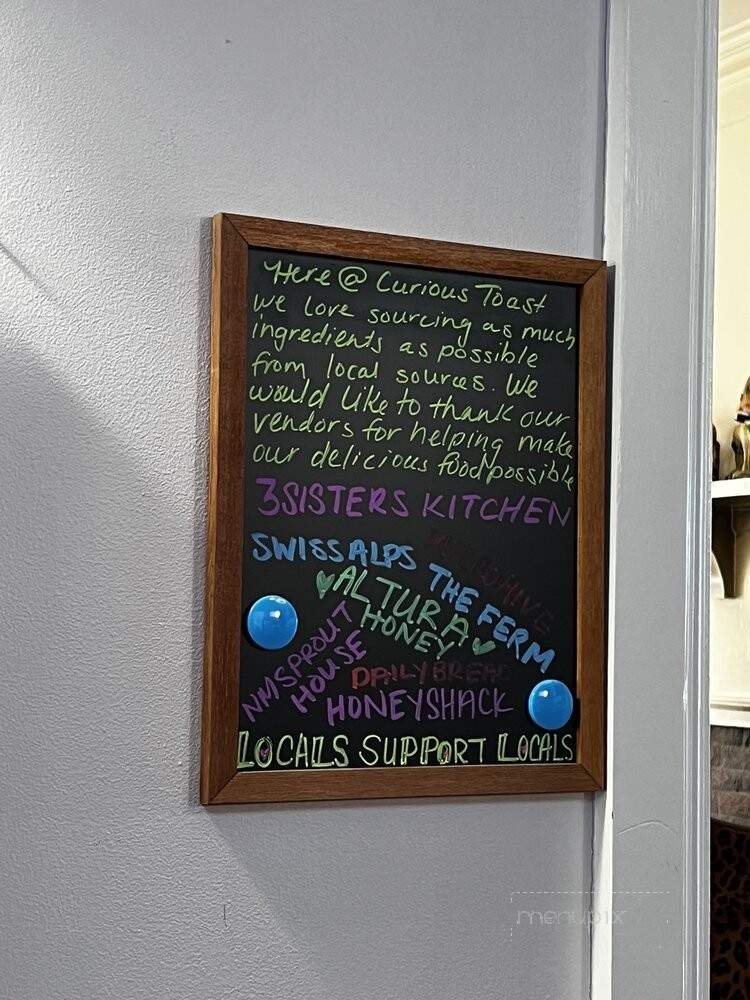 Here @ Curious Toast
we love sourcing as much
ingredients as possible
from local sources. We
would like to thank our
vendors for helping make
our delicious food possible
3SISTERS KITCHEN
SWISSALPS
THE FERM
ALTURA
HONEY
NMSPROUT
HOUSE
DAILYBREAD
HONEYSHACK
LOCALS SUPPORT LOCALS
menupix